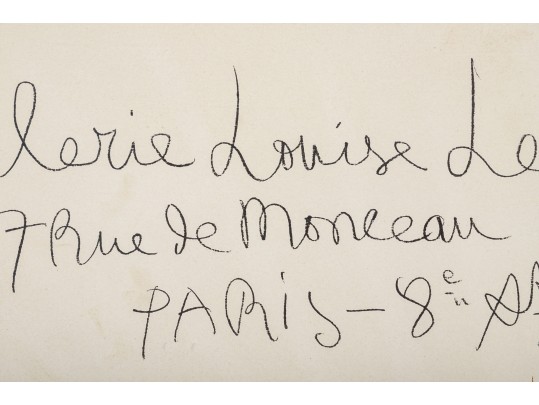 lerie Louise Le
7 Rue de Monceau
PARIS - 8e